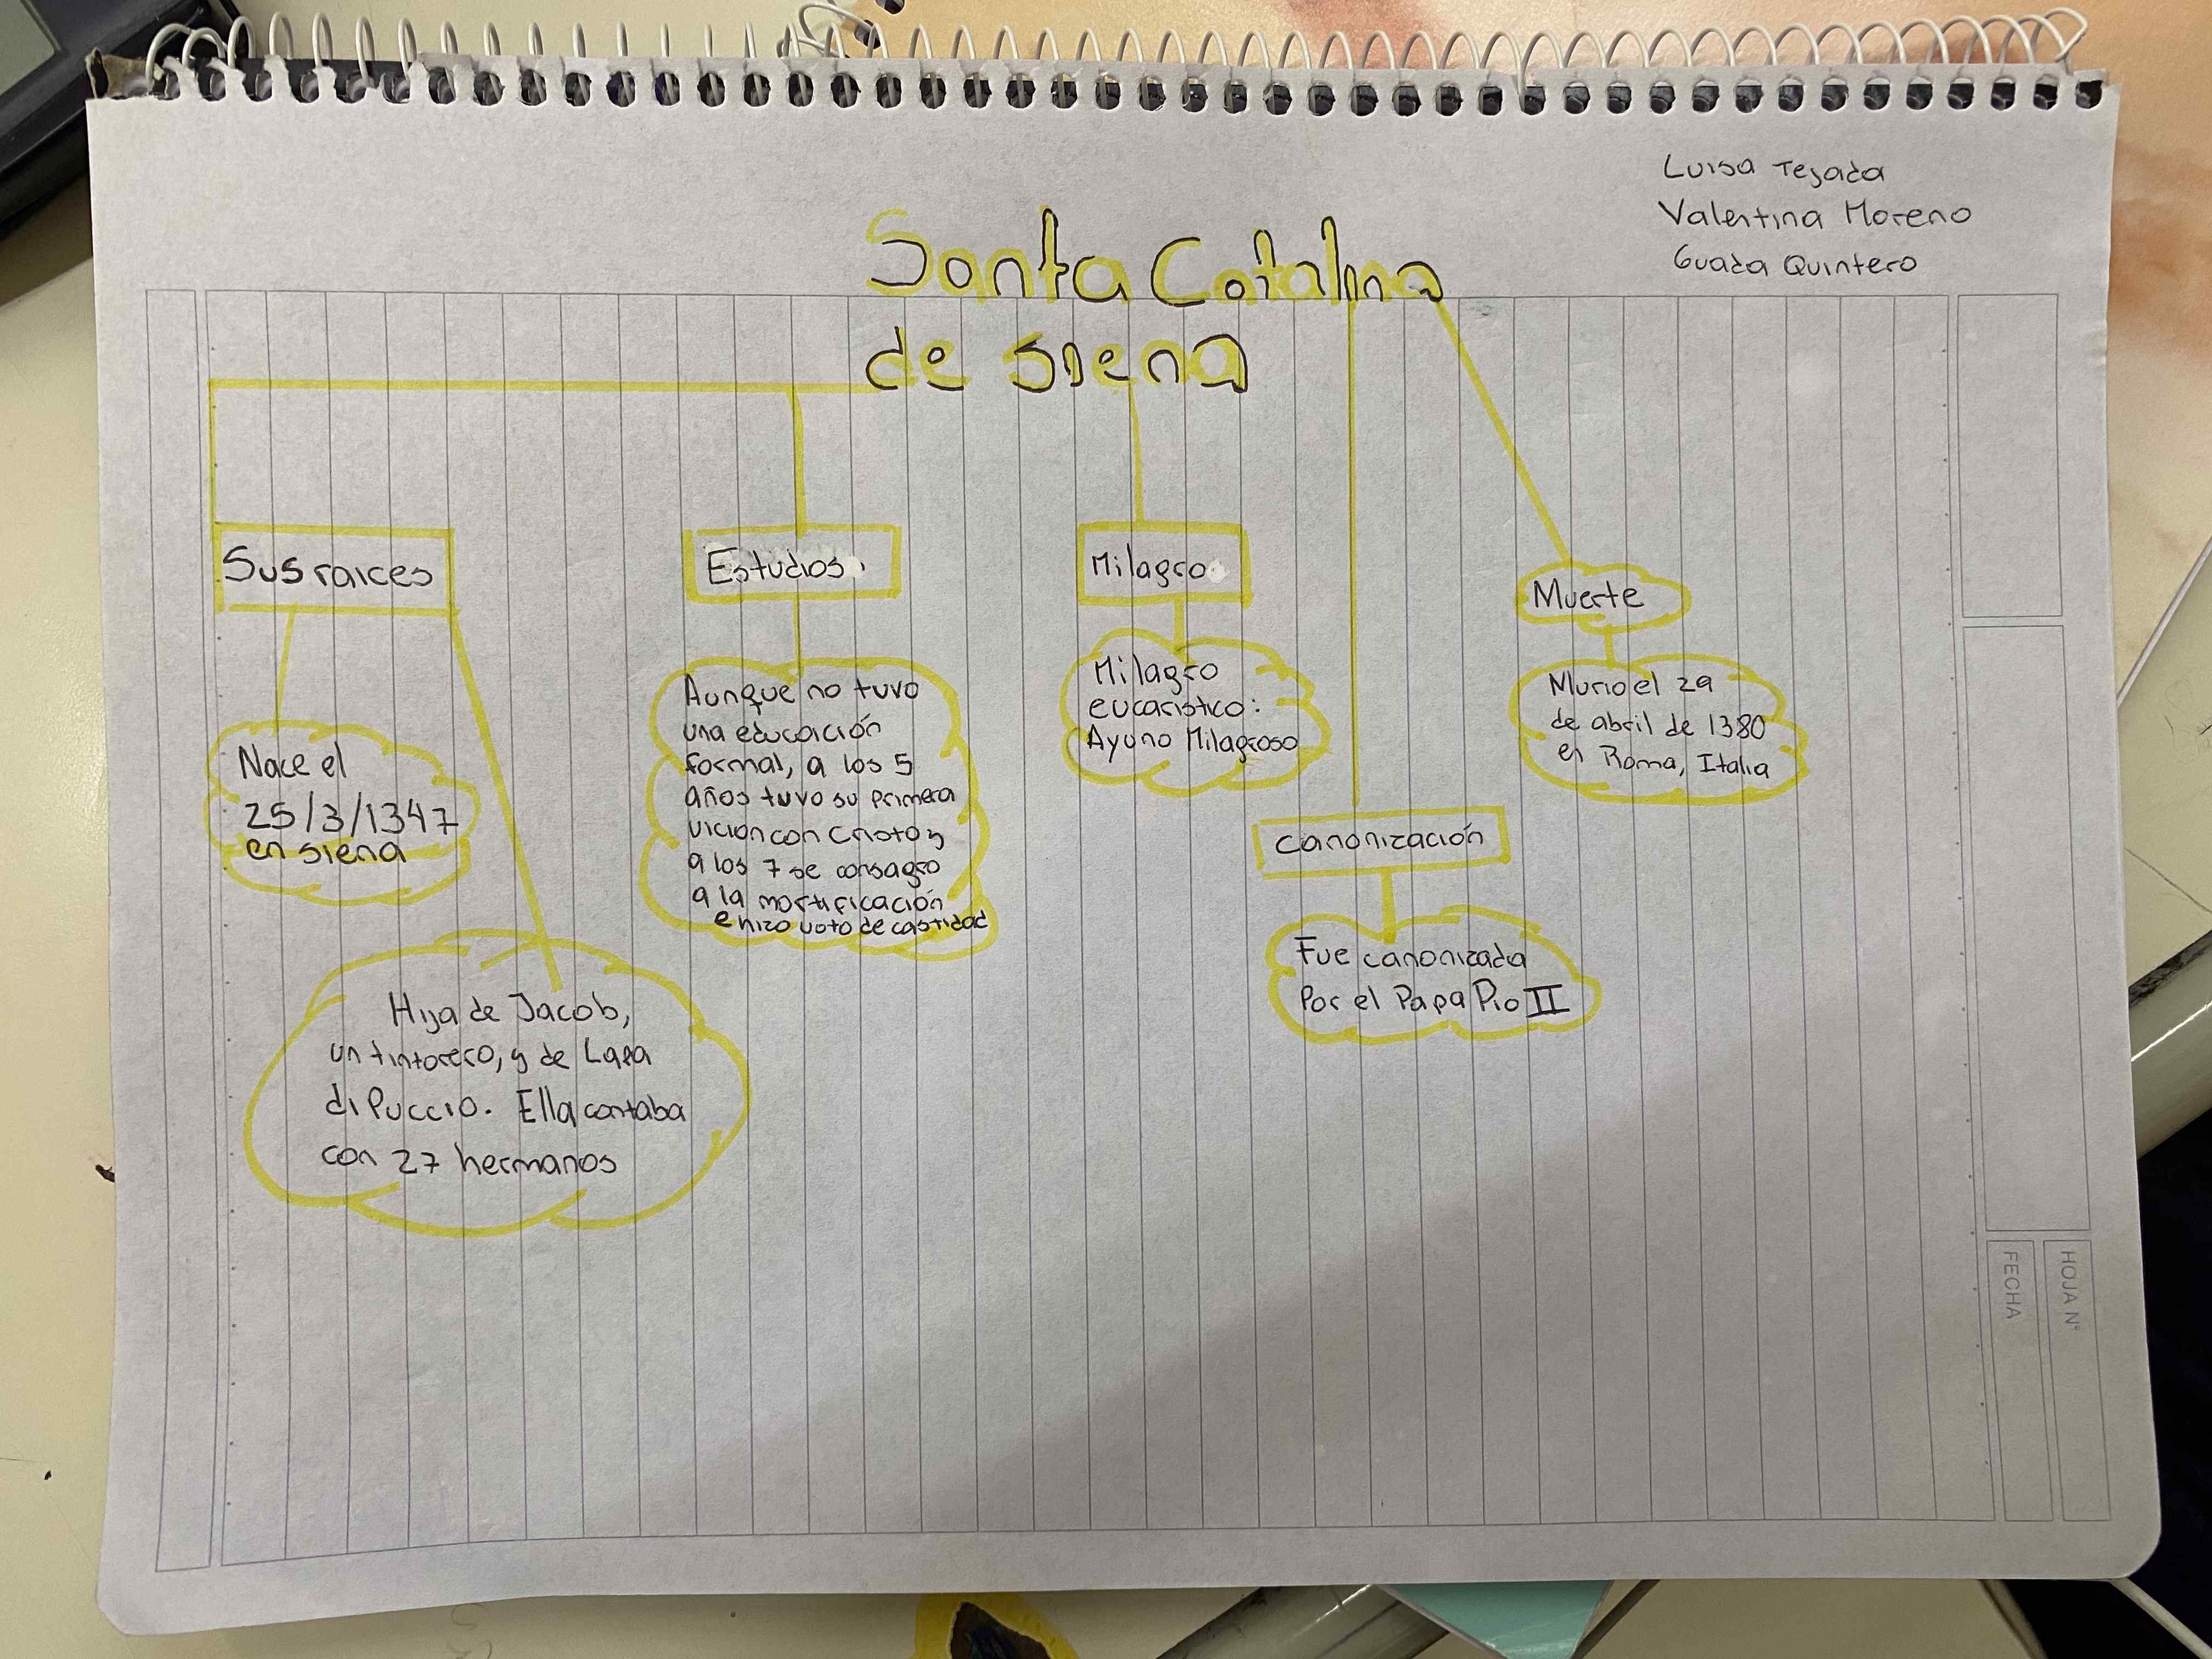 Luisa Tejada
Valentina Moreno
Guada Quintero
Santa Catalina
de siena
Sus raices
Nace el
25/3/1347
en siena
Hija de Jacob,
un tintorero, y de Lapa
di Puccio. Ella contaba
con 27 hermanos
Estudios
Aunque no tuvo
una educación
formal, a los 5
años tuvo su primera
vicion con Cristo y
a los 7 se consagro
a la mortificación
e hizo voto de castidad
Milagro
Milagro
eucaristico:
Ayuno Milagroso
canonización
Fue canonizada
Por el Papa Pio II
Muerte
Murio el 29
de abril de 1380
en Roma, Italia
HOJA N°
FECHA